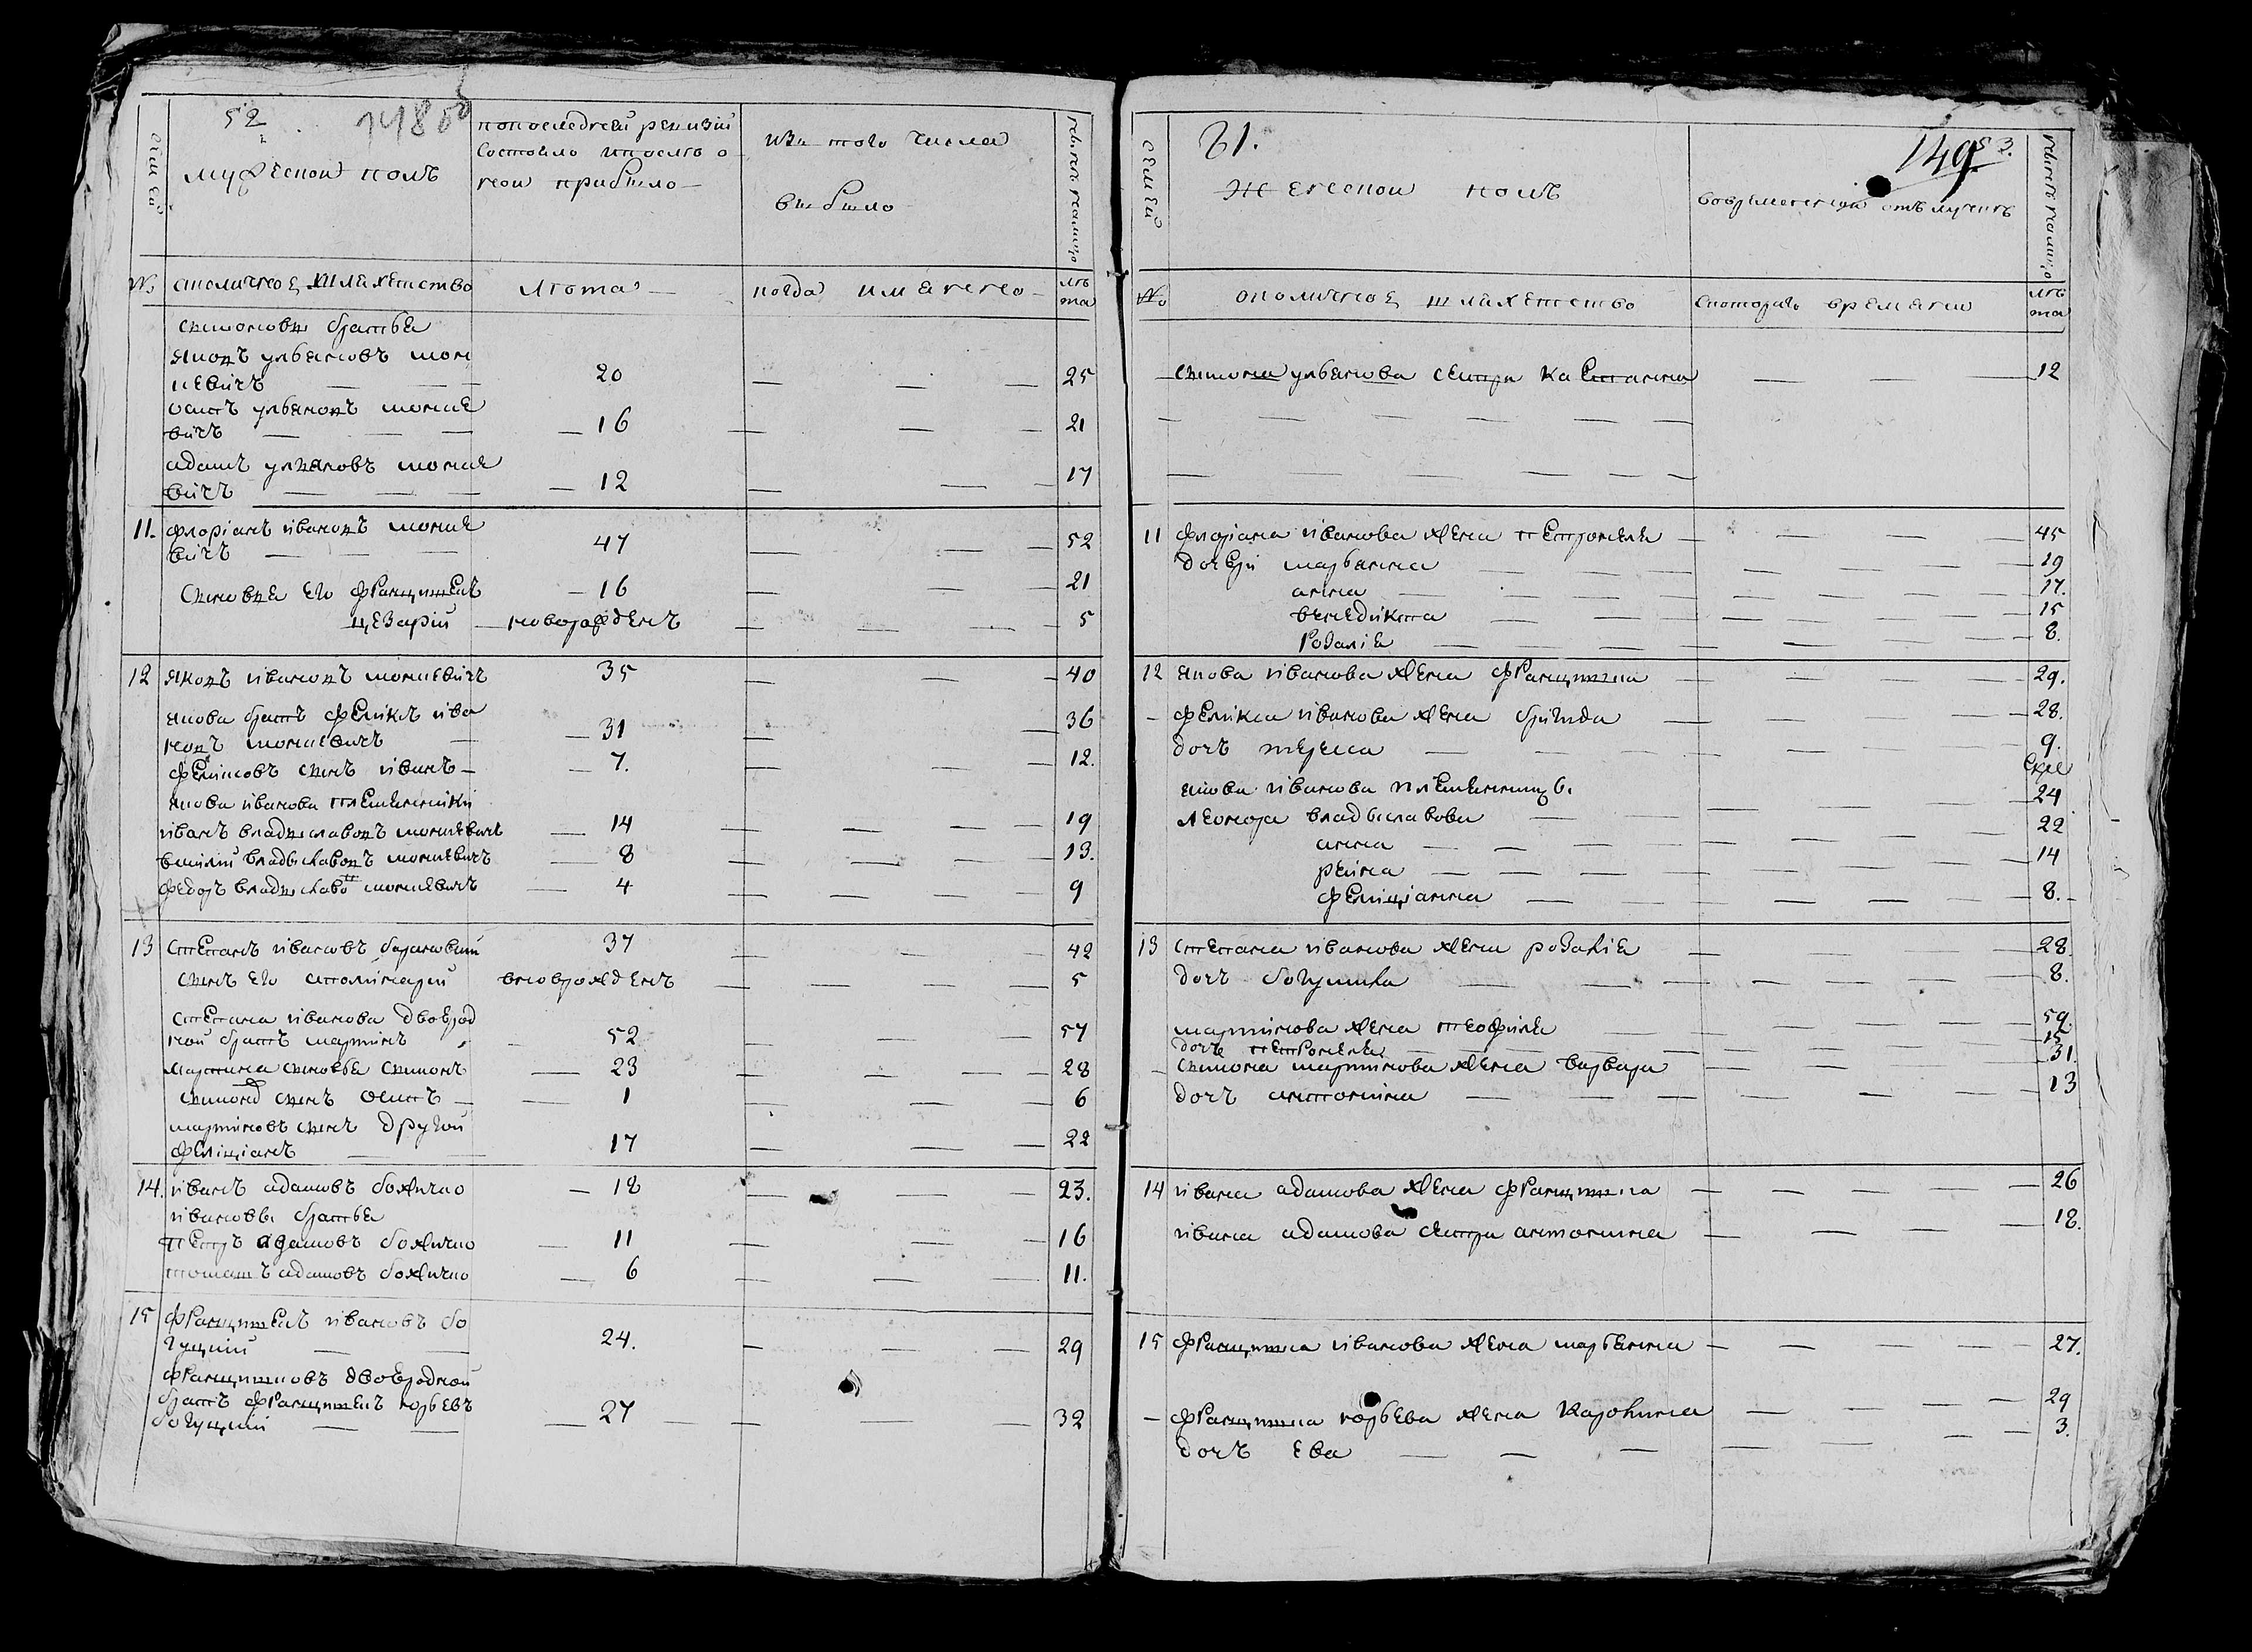 52
148 об
семей
мужеской полъ
попоследней ревизіи
состояло ипосле о
ной прибыло
изъ того числа
выбыло
ныне налицо
№
околичное шляхетство
лѣта
когда имянно
лѣта
симоновы братья
яковъ ульяновъ мони
кевичъ 20 25
осипъ ульяновъ моник
вичъ 16 21
адамъ ульяновъ моник
вичъ 12 17
11. флоріанъ ивановъ моник
вичъ 47 52
сыновья его францишекъ 16 21
цезарій новорожденъ 5
12 яковъ ивановъ моникевичъ 35 40
якова братъ феликсъ ива
новъ моникевичъ 31 36
феликсовъ сынъ иванъ 7. 12.
якова иванова племенники
иванъ владиславовъ моникевичъ 14 19
василий владиславовъ моникевичъ 8 13.
федоръ владиславовъ моникевичъ 4 9
13 степанъ ивановъ барановский 37 42
сынъ его аполинарий вновьрожденъ 5
степана иванова двоюрод
ной братъ мартинъ 52 57
мартина сыновья симонъ 23 28
симонов сынъ осипъ 1 6
мартиновъ сынъ другой
феліціанъ 17 22
14. иванъ адамовъ божичко 18 23.
ивановы братья
петръ адамовъ божичко 11 16
томашъ адамовъ божичко 6 11.
15 францишекъ ивановъ бо
гуцкий 24. 29
францишковъ двоюродной
братъ францишекъ юрьевъ
богуцкій 27 32
61.
149 53.
семей
женской полъ
вовременной отлучкѣ
ныне налицо
№
околичное шляхетство
скоторагъ времени
лѣта
симона ульянова сестра Констанция 12
11 флоріана иванова жена петронеля 45
дочери марьянна 19
анна 17.
бенедикта 15
Розалія 8.
12 якова иванова жена францишка 29.
феликса иванова жена бригида 28.
дочъ тереса 9.
якова иванова племянницы.
леонора владыславова 24
анна 22
реина 14
феліціанна 8.
13 степана иванова жена розалія 28.
дочъ богумила 8.
мартинова жена теофиля 59
дочь петронеля 15
симона мартинова жена варвара 31.
дочъ антонина 13
14 ивана адамова жена францишка 26
ивана адамова сестра антонина 18.
15 францишка иванова жена марьянна 27.
францишка юрьева жена Каролина 29
дочъ ева 3.